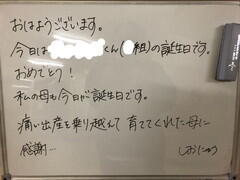 おはようございます。
今日は くん( 組)の誕生日です。
おめでとう!
私の母も今日が誕生日です。
痛い出産を乗り越えて育ててくれた母に
感謝…